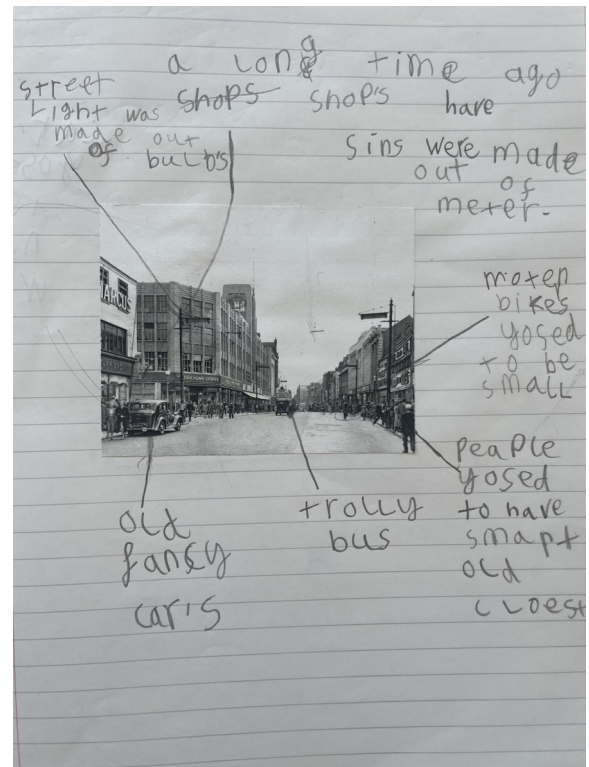 a long time ago
street
Light was
made out
of bulb's
shops shop's have
sins were made
out of
meter.
MARCUS
moter
bikes
yosed
to be
small
peaple
yosed
to have
smart
old
cloest
trolly
bus
old
fancy
car's